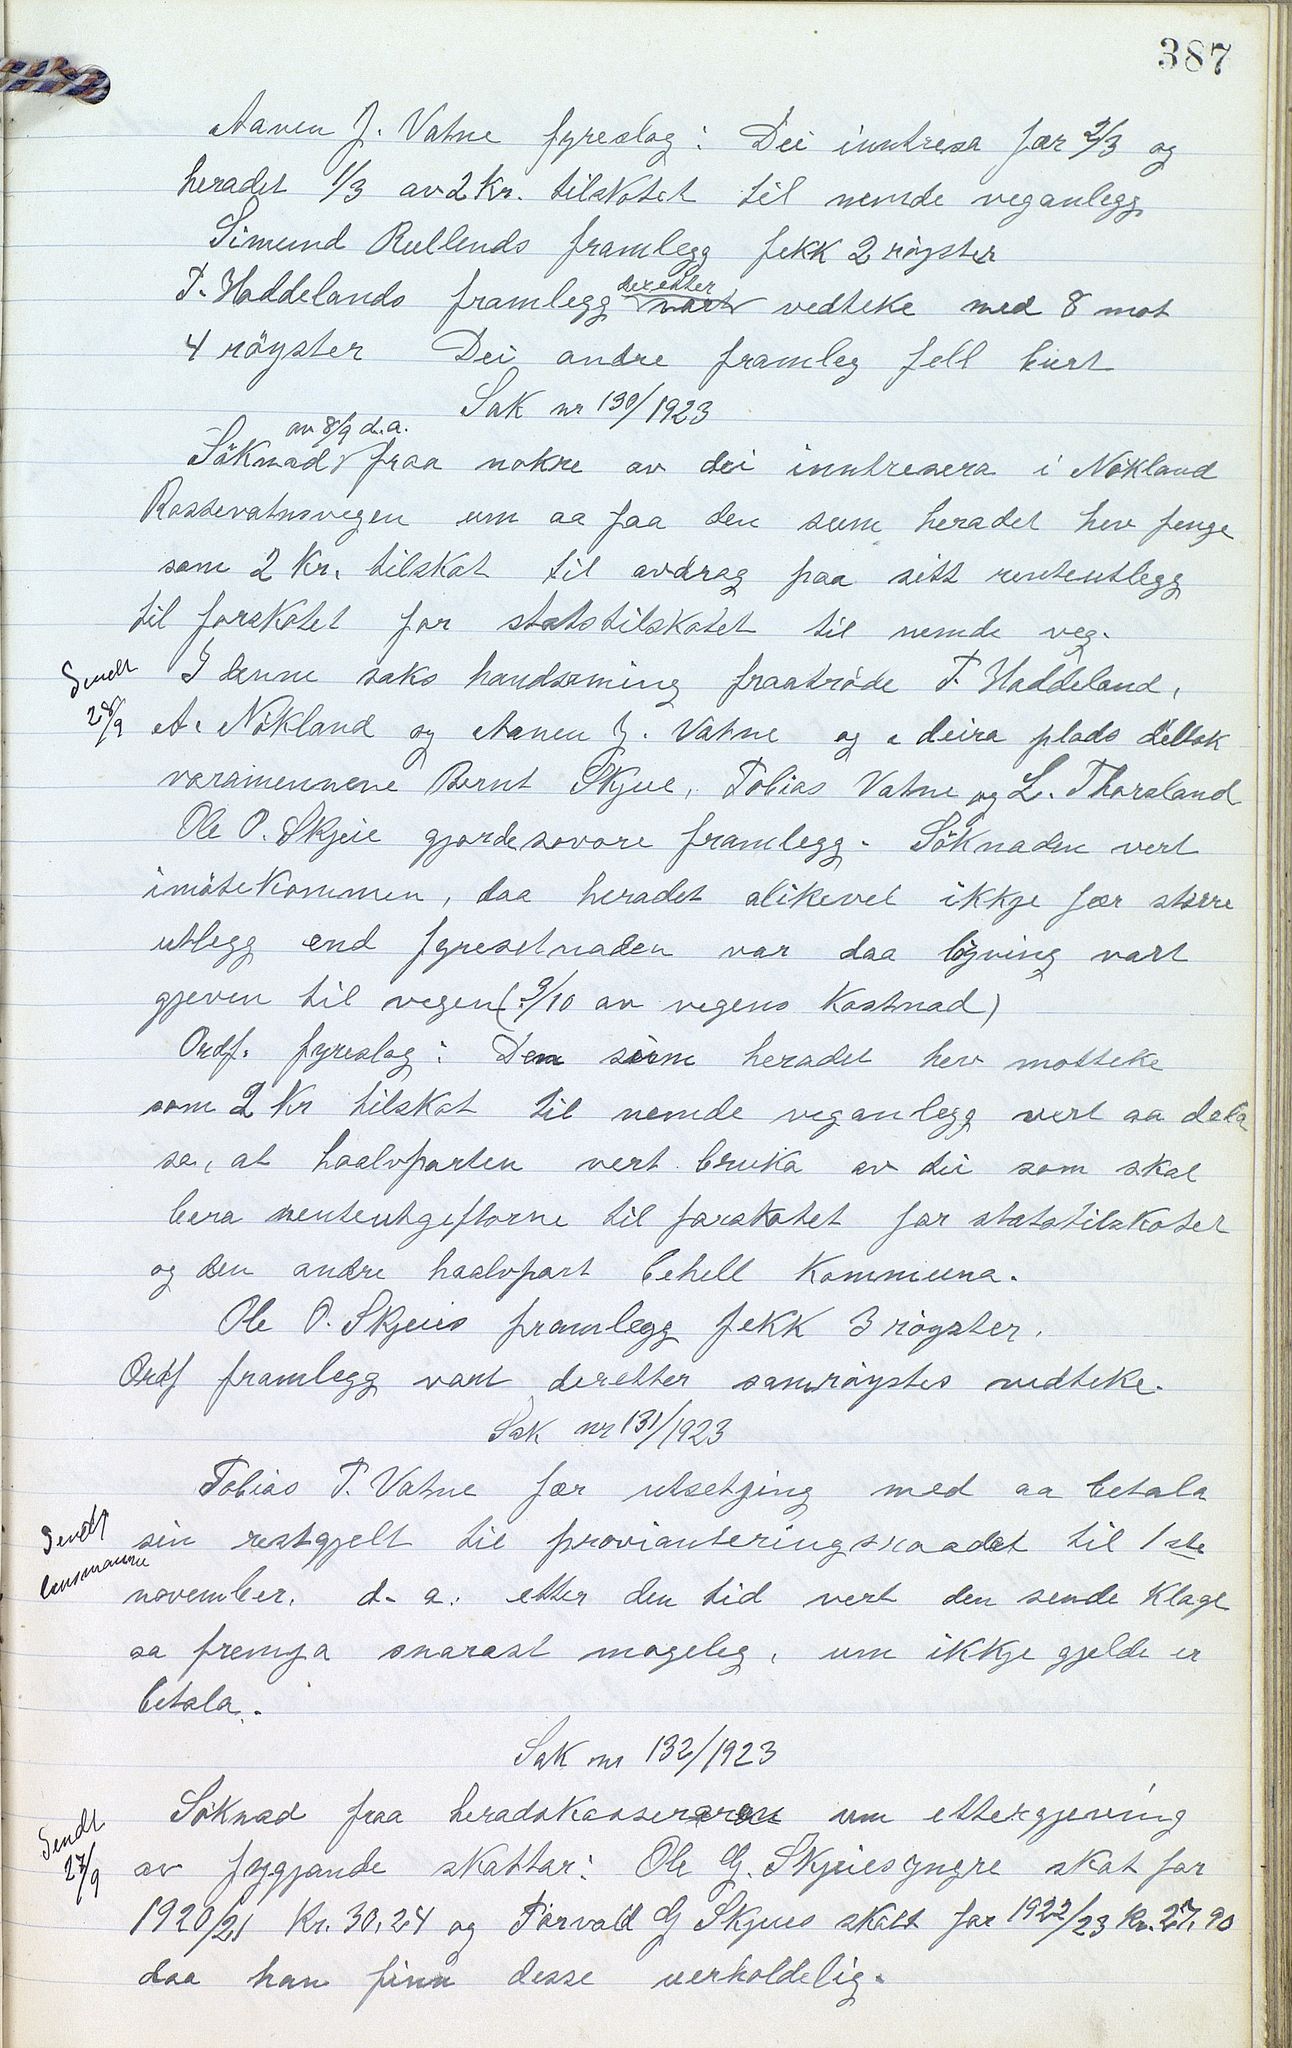 387
Aanen J. Vatne fyreslag: Dei inntresa fær 2/3 og
heradet 1/3 av 2 Kr. tilskotet til nemde veganlegg
Simund Rullends framlegg fekk 2 røyster
T. Haddelands framlegg deretter vart vedteke med 8 mot
4 röyster Dei andre framleg fell burt
Sak nr 130/1923
av 8/9 d.a.
Söknad fraa nokre av dei inntresera i Nökland
Rossevatnsvegen um aa faa den sum heradet hev fenge
som 2 Kr. tilskot til avdrag paa sitt renteutlegg
til forskotet for statstilskotet til nemde veg.
Sendt
28/9
I denne saks handsaming fraatröde T. Haddeland,
A. Nökland og Aanen J. Vatne og i deira plads deltok
varamennene Bernt Skjue, Tobias Vatne og L. Thorsland
Ole O. Skjeie gjorde sovore framlegg. Söknaden vert
imötekommen, daa heradet alikevel ikkje fær større
utlegg end fyresetnaden var daa löyving vart
gjeven til vegen (9/10 av vegens Kostnad)
Ordf. fyreslag: Den sum heradet hev motteke
som 2 Kr tilskot til nemde veganlegg vert aa dela
sa, at haalvparten vert bruka av dei som skal
bera renteutgiftorne til forskotet for statstilskotet
og den andre haalvpart behell Kommuna.
Ole O. Skjeies framlegg fekk 3 röyster.
Ordf framlegg vart deretter samröystes vedteke.
Sak nr 131/1923
Tobias T. Vatne fær utsetjing med aa betala
Sendt
lensmannen
sin restgjelt til provianteringsraadet til 1ste
november. d. a. etter den tid vert den sende Klage
sa fremja snarast mogeleg, um ikkje gjelde er
betala.
Sak nr 132/1923
Söknad fraa heradskasseraren um ettergjeving
Sendt
27/9
av fygjande skattar: Ole G. Skjeies yngre skat for
1920/21 Kr. 30,24 og Torvald G Skjeies skatt for 1922/23 Kr. 27,90
daa han finn desse uerholdelig.